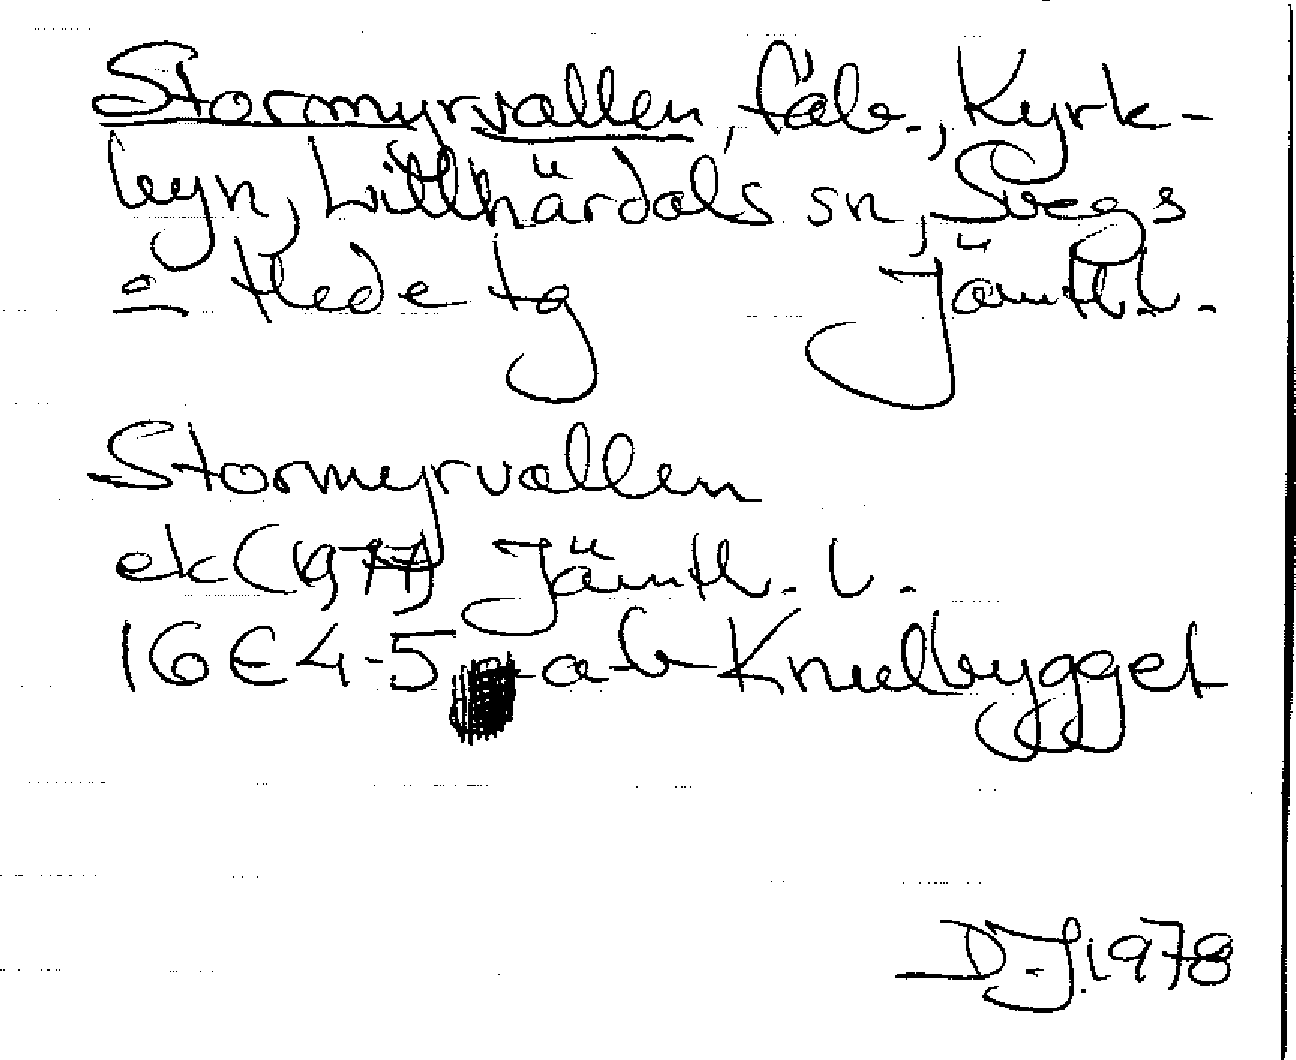 Stormyrvallen, fäb., Kyrk-
byn, Lillhärdals sn, Svegs
o Hede tg Jämtl. l.
Stormyrvallen
ek (1977) Jämtl. l.
16E 4-5 a-b Knulbygget
D.J. 1978